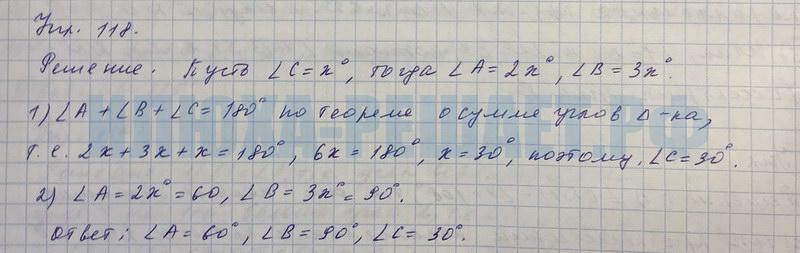 Упр. 118.
Решение. Пусть ∠C = x°, тогда ∠A = 2x°, ∠B = 3x°.
1) ∠A + ∠B + ∠C = 180° по теореме о сумме углов Δ-ка,
т.е. 2x + 3x + x = 180°, 6x = 180°, x = 30°, поэтому, ∠C = 30°.
2) ∠A = 2x° = 60, ∠B = 3x° = 90°.
Ответ: ∠A = 60°, ∠B = 90°, ∠C = 30°.